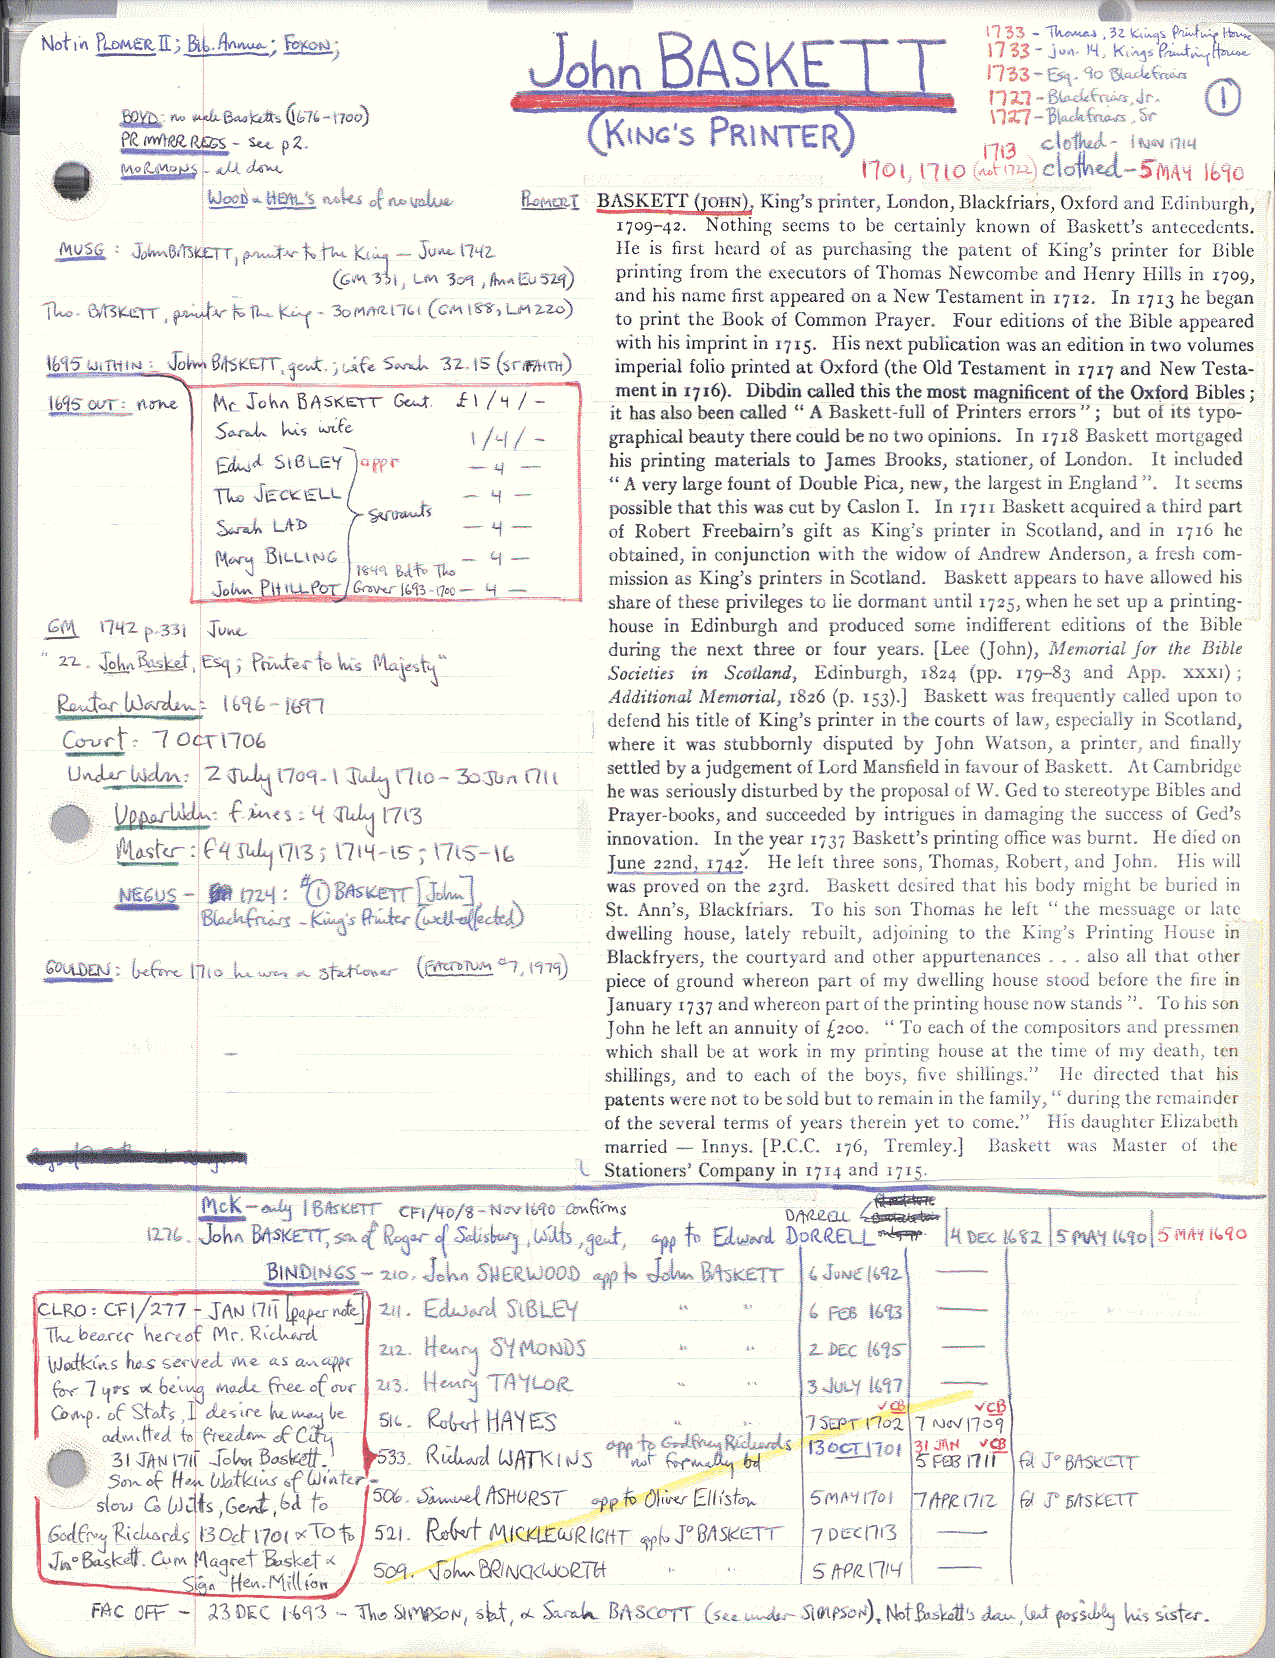 Not in PLOMER II; Bib. Annua; FOXON;
John BASKETT
(KING'S PRINTER)
1733 - Thomas, 32 Kings Printing House
1733 - Jun. 14, Kings Printing House
1733 - Esq. 90 Blackfriars
1727 - Blackfriars, Jr.
1727 - Blackfriars, Sr
①
1713 clothed - 1 NOV 1714
1701, 1710 (not 1722) clothed - 5 MAY 1690
BOYD: no male Basketts (1676-1700)
PR MARR REGS - see p2.
MORMONS - all done
WOOD & HEAL'S notes of no value
MUSG: John BASKETT, printer to the King - June 1742
(GM 331, LM 309, Ann EU 529)
Tho. BASKETT, printer to the King - 30 MAR 1761 (GM 188, LM 220)
1695 WITHIN: John BASKETT, gent.; wife Sarah 32.15 (ST FAITH)
1695 OUT: none
Mr John BASKETT Gent. £1/4/-
Sarah his wife 1/4/-
Edwd SIBLEY appr - 4 -
Tho JECKELL - 4 -
Sarah LAD servants - 4 -
Mary BILLING - 4 -
John PHILLPOT 1849 Bd to Tho Grover 1693-1700 - 4 -
GM 1742 p.331 June
"22. John Basket, Esq; Printer to his Majesty"
Renter Warden: 1696-1697
Court: 7 OCT 1706
Under Wdn: 2 July 1709-1 July 1710-30 Jun 1711
Upper Wdn: fines: 4 July 1713
Master: f 4 July 1713; 1714-15; 1715-16
NEGUS - 1724: #① BASKETT [John]
Blackfriars - King's Printer (well-affected)
GOULDEN: before 1710 he was a stationer (FACTOTUM #7, 1979)
PLOMER I BASKETT (JOHN), King's printer, London, Blackfriars, Oxford and Edinburgh,
1709-42. Nothing seems to be certainly known of Baskett's antecedents.
He is first heard of as purchasing the patent of King's printer for Bible
printing from the executors of Thomas Newcombe and Henry Hills in 1709,
and his name first appeared on a New Testament in 1712. In 1713 he began
to print the Book of Common Prayer. Four editions of the Bible appeared
with his imprint in 1715. His next publication was an edition in two volumes
imperial folio printed at Oxford (the Old Testament in 1717 and New Testa-
ment in 1716). Dibdin called this the most magnificent of the Oxford Bibles;
it has also been called "A Baskett-full of Printers errors"; but of its typo-
graphical beauty there could be no two opinions. In 1718 Baskett mortgaged
his printing materials to James Brooks, stationer, of London. It included
"A very large fount of Double Pica, new, the largest in England". It seems
possible that this was cut by Caslon I. In 1711 Baskett acquired a third part
of Robert Freebairn's gift as King's printer in Scotland, and in 1716 he
obtained, in conjunction with the widow of Andrew Anderson, a fresh com-
mission as King's printers in Scotland. Baskett appears to have allowed his
share of these privileges to lie dormant until 1725, when he set up a printing-
house in Edinburgh and produced some indifferent editions of the Bible
during the next three or four years. [Lee (John), Memorial for the Bible
Societies in Scotland, Edinburgh, 1824 (pp. 179-83 and App. XXXI);
Additional Memorial, 1826 (p. 153).] Baskett was frequently called upon to
defend his title of King's printer in the courts of law, especially in Scotland,
where it was stubbornly disputed by John Watson, a printer, and finally
settled by a judgement of Lord Mansfield in favour of Baskett. At Cambridge
he was seriously disturbed by the proposal of W. Ged to stereotype Bibles and
Prayer-books, and succeeded by intrigues in damaging the success of Ged's
innovation. In the year 1737 Baskett's printing office was burnt. He died on
June 22nd, 1742. He left three sons, Thomas, Robert, and John. His will
was proved on the 23rd. Baskett desired that his body might be buried in
St. Ann's, Blackfriars. To his son Thomas he left "the messuage or late
dwelling house, lately rebuilt, adjoining to the King's Printing House in
Blackfryers, the courtyard and other appurtenances . . . also all that other
piece of ground whereon part of my dwelling house stood before the fire in
January 1737 and whereon part of the printing house now stands". To his son
John he left an annuity of £200. "To each of the compositors and pressmen
which shall be at work in my printing house at the time of my death, ten
shillings, and to each of the boys, five shillings." He directed that his
patents were not to be sold but to remain in the family, "during the remainder
of the several terms of years therein yet to come." His daughter Elizabeth
married — Innys. [P.C.C. 176, Tremley.] Baskett was Master of the
Stationers' Company in 1714 and 1715.
McK - only 1 BASKETT CF1/40/8 - Nov 1690 confirms
1276. John BASKETT, son of Roger of Salisburg, Wilts, gent, app to Edward DORRELL DARRELL 4 DEC 1682 | 5 MAY 1690 | 5 MAY 1690
BINDINGS - 210. John SHERWOOD app to John BASKETT 6 JUNE 1692 —
211. Edward SIBLEY " " 6 FEB 1693 —
212. Henry SYMONDS " " 2 DEC 1695 —
213. Henry TAYLOR " " 3 JULY 1697 —
516. Robert HAYES " " 7 SEPT 1702 ✓CB 7 NOV 1709 ✓CB
533. Richard WATKINS app to Godfrey Richards not formally bd 13 OCT 1701 31 JAN ✓CB 5 FEB 1711 fd Jº BASKETT
506. Samuel ASHURST app to Oliver Elliston 5 MAY 1701 7 APR 1712 fd Jº BASKETT
521. Robert MICKLEWRIGHT app to Jº BASKETT 7 DEC 1713 —
509. John BRINCKWORTH " " 5 APR 1714 —
CLRO: CF1/277 - JAN 1711 [paper note]
The bearer hereof Mr. Richard
Watkins has served me as an appr
for 7 yrs & being made free of our
Comp. of Stats, I desire he may be
admitted to freedom of City
31 JAN 1711 John Baskett.
Son of Hen Watkins of Winter-
slow Co Wilts, Gent, bd to
Godfrey Richards 13 Oct 1701 & TO to
Jnº Baskett. Cum Magret Basket &
Sign Hen. Million
FAC OFF - 23 DEC 1693 - Tho SIMPSON, stat, & Sarah BASCOTT (see under SIMPSON). Not Baskett's dau, but possibly his sister.